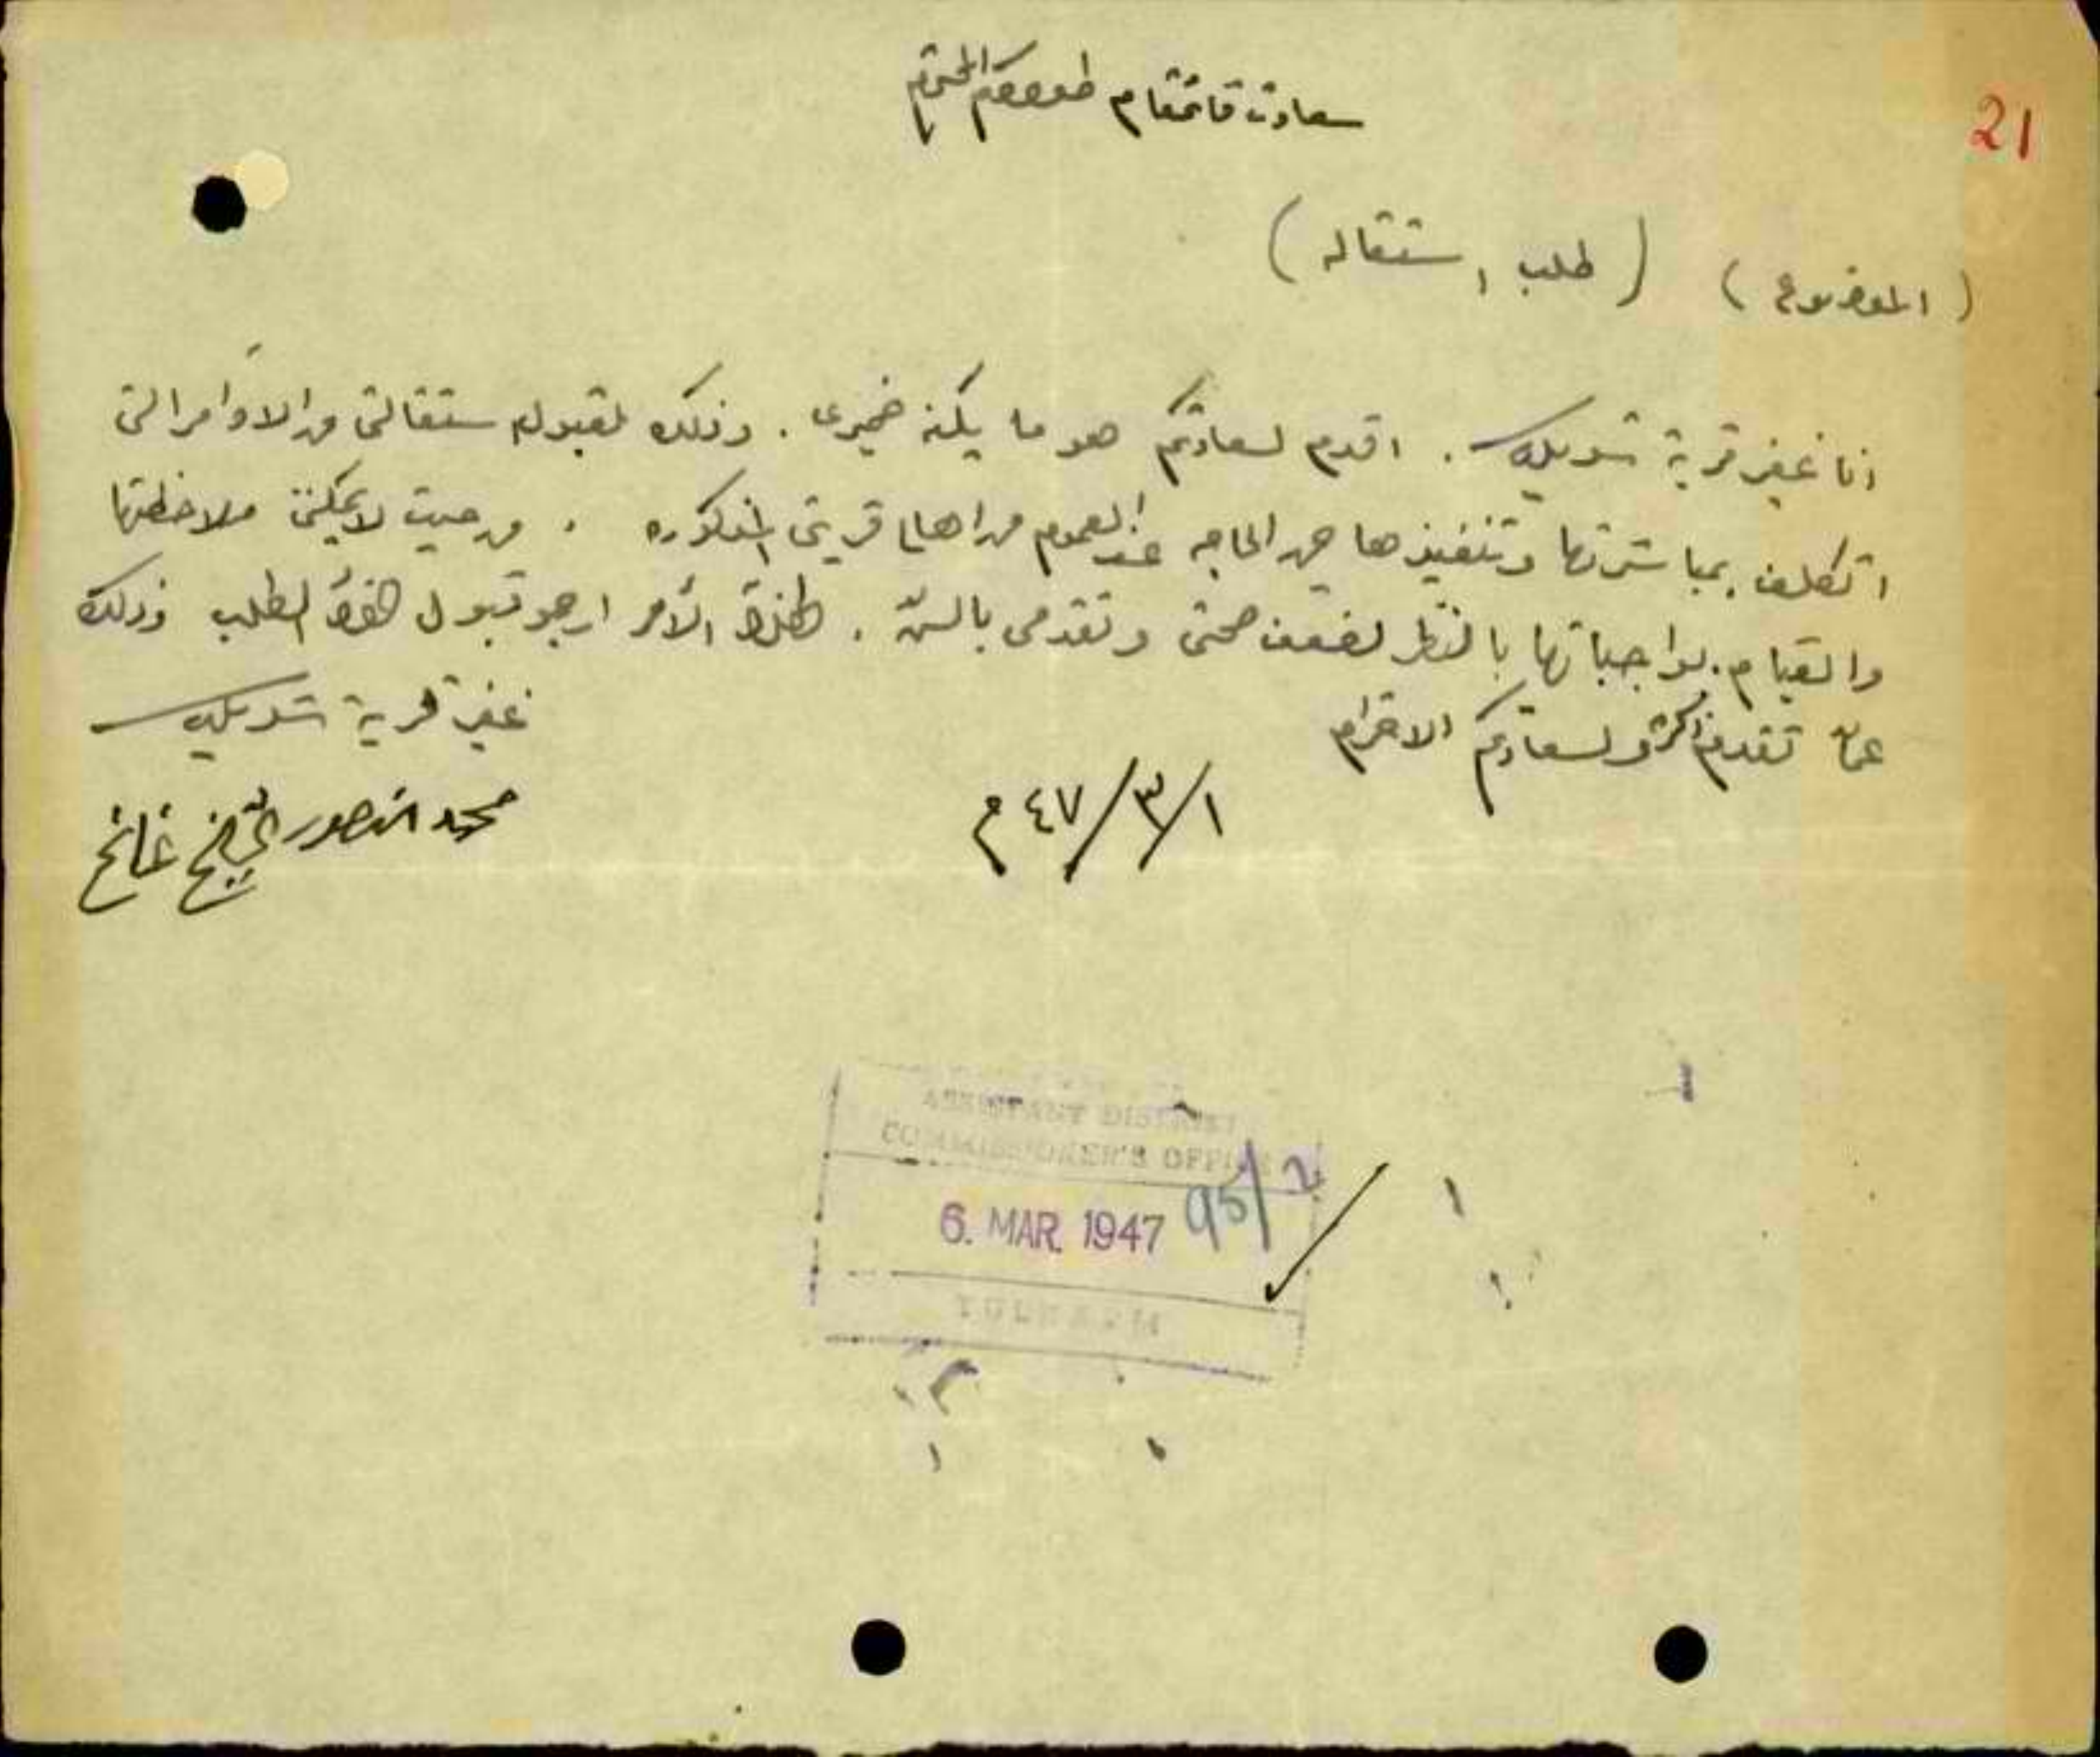 سعادة قائمقام طولكرم المحترم
21
(الموضوع) (طلب استقاله)
انا غفير قرية شويكه . اقدم لسعادتكم هو ما يكنه ضميري . وذلك لقبول ستقالتي من الاوامر التي
اتكلف بمباشرتها وتنفيذها حين الحاجه عند العموم من اهالي قريتي المذكوره . ومن حيث لا يمكنني ملاحظتها
والقيام بواجباتها بالنظر لضعف صحتي وتقدمي بالسن . لهذا الأمر ارجو قبول هذا الطلب وذلك
عما تقدم ولسعادتكم الاحترام
غفير قرية شويكه
١/٣/٤٧ م
محمد منصور الشيخ غانم
ASSISTANT DISTRICT
COMMISSIONER'S OFFICE
6. MAR. 1947 95/2
TULKARM